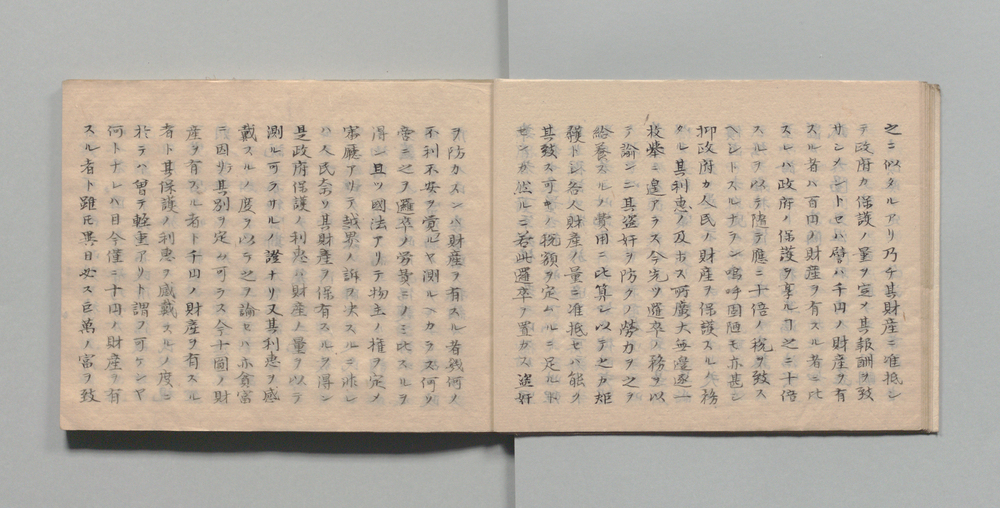 之ニ似タルアリ乃チ其財産ニ准抵シ
テ政府カ保護ノ量ヲ定メ其報酬ヲ致
サシメントセハ譬ハ千円ノ財産ヲ有
スル者ハ百円ノ財産ヲ有スル者ニ比
スレハ政府ノ保護ヲ享ルヿ之ニ十倍
スルヲ以テ随テ應ニ十倍ノ税ヲ致ス
ヘシトスルナラン嗚呼固陋モ亦甚シ
抑政府カ人民ノ財産ヲ保護スルノ務
タル其利恵ノ及ホス所廣大無邊逐一
枚挙ニ遑アラス今先ツ邏卒ノ務ヲ以
テ論センニ其盗奸ヲ防クノ勞力ヲ之ヲ
給養スルノ費用ニ比算シ以テ之カ矩
矱トシ各人財産ノ量ニ准抵セハ能ク
其致ス可キノ税額ヲ定ムルニ足ルヿ
ヲ防カスンハ財産ヲ有スル者幾何ノ
不利不安ヲ覚ルヤ測ルヘカラス何ソ
啻ニ之ヲ邏卒ノ勞費ニノミ比スルヲ
得ン且ツ國法アリテ物主ノ権ヲ定メ
審廳アリテ越界ノ訴ヲ決スルニ非レ
ハ人民奈ソ其財産ヲ保有スルヲ得ン
是政府保護ノ利恵ハ財産ノ量ヲ以テ
測ル可ラサルノ證ナリ又其利恵ヲ感
戴スルノ度ヲ以テ之ヲ論セハ亦貧富
ニ因リ其別ヲ定ム可ラス今十圓ノ財
産ヲ有スル者ト千円ノ財産ヲ有スル
者ト其保護ノ利恵ヲ感戴スルノ度ニ
於テハ曽テ軽重アリト謂フ可ケンヤ
何トナレハ目今僅ニ十円ノ財産ヲ有
スル者ト雖氏異日必ス巨萬ノ富ヲ致